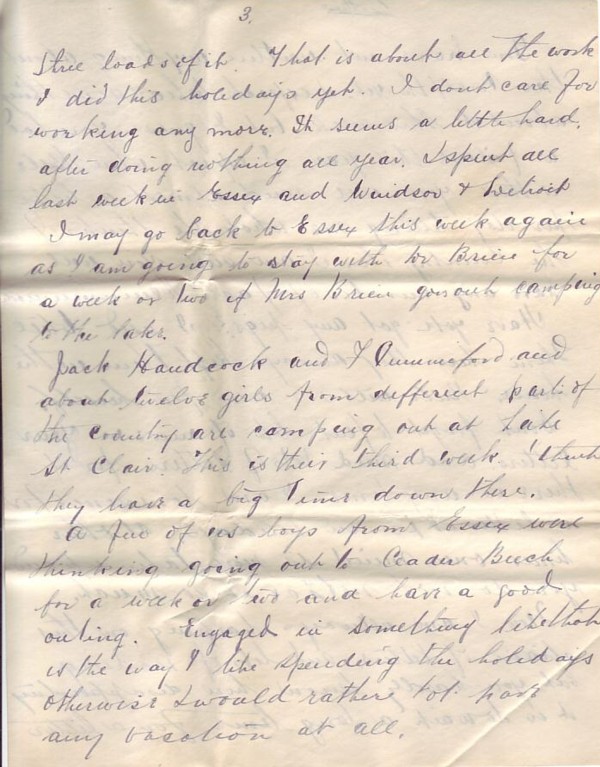 3.
three loads of it. That is about all the work
I did this holidays yet. I dont care for
working any more. It seems a little hard.
after doing nothing all year. I spent all
last week in Essex and Windsor & Detroit
I may go back to Essex this week again
as I am going to stay with Dr Brien for
a week or two if Mrs Brien goes out camping
to the lake.
Jack Handcock and F and
about twelve girls from different parts of
the country are camping out at Lake
St Clair. This is their third week I think
they have a big time down there.
A few of us boys from Essex were
thinking going out to Ceader Beech
for a week or two and have a good
outing. Engaged in something like that
is the way I like spending the holidays
otherwise I would rather not have
any vacation at all.